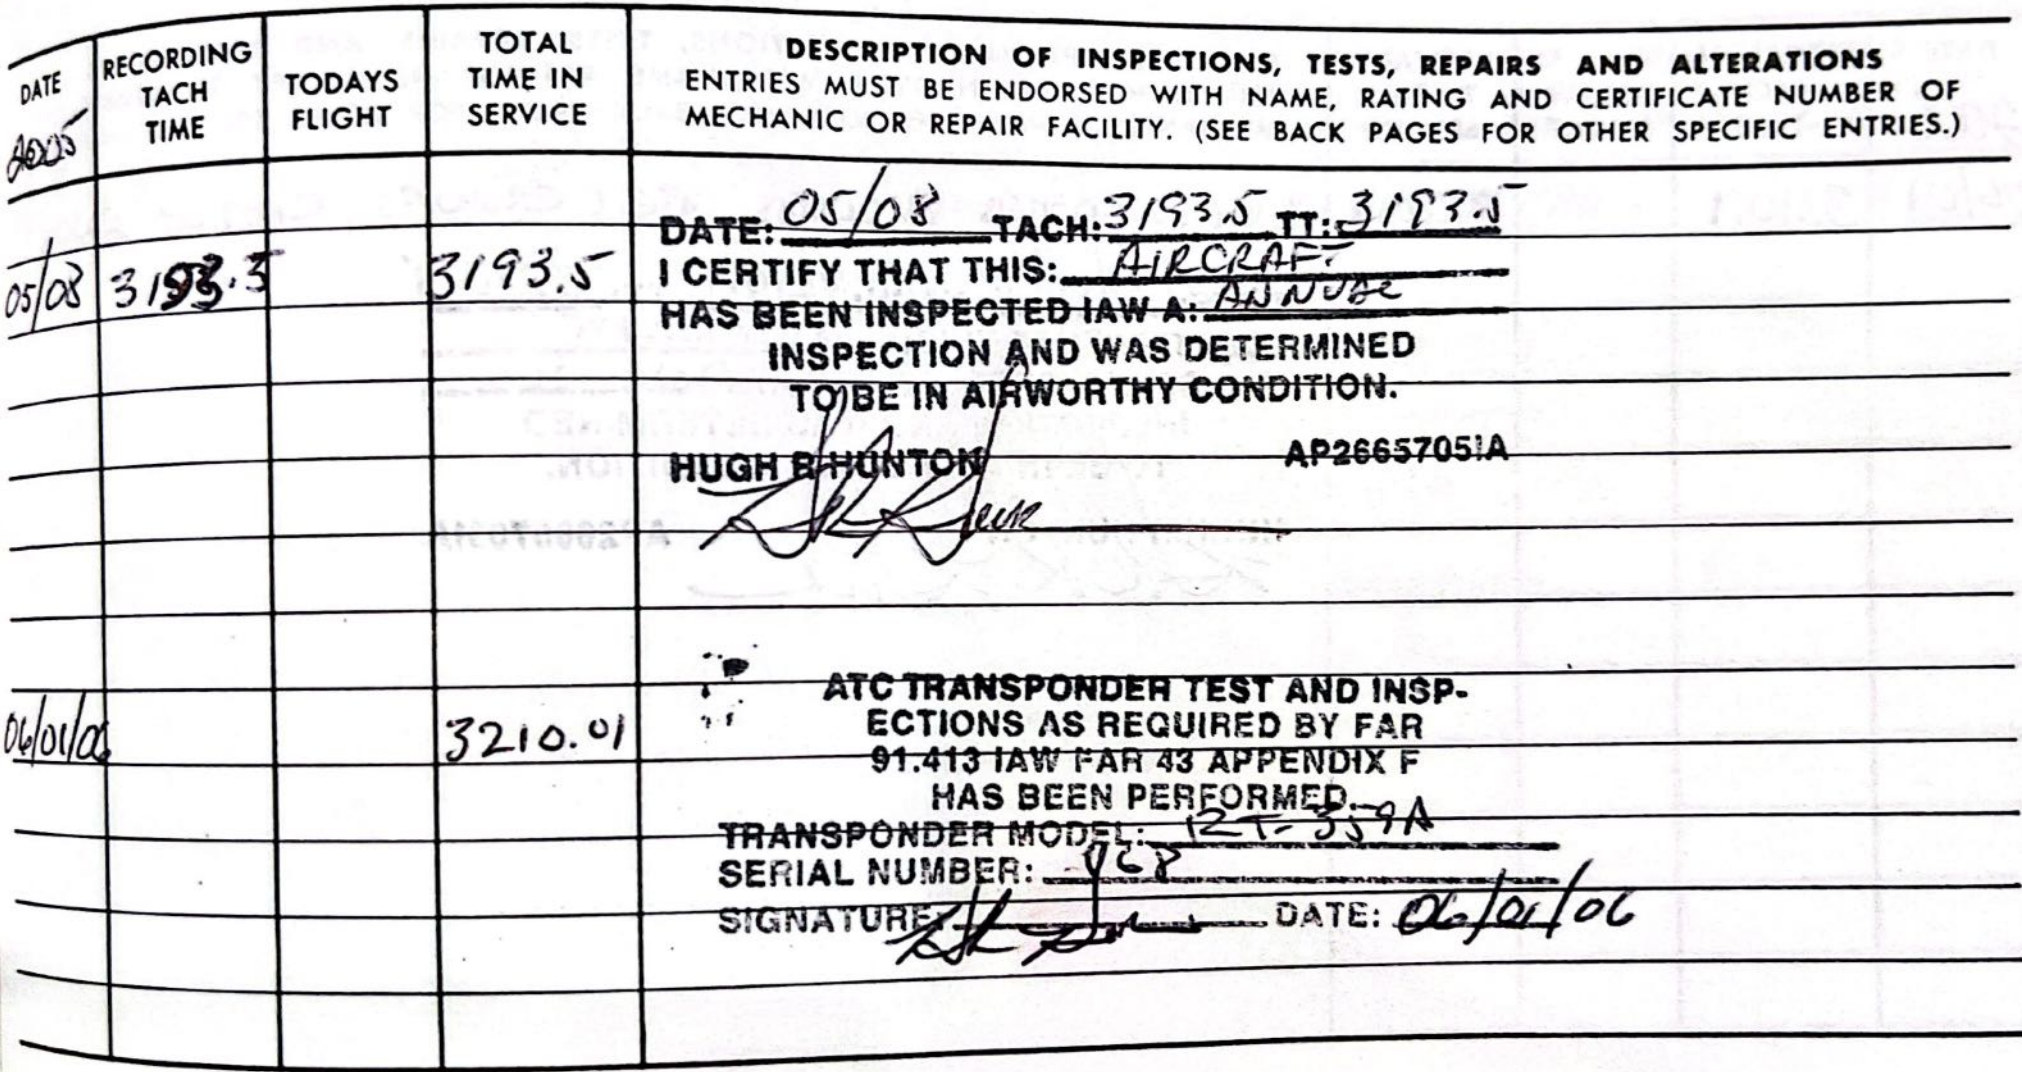 DATE
2005
RECORDING
TACH
TIME
TODAYS
FLIGHT
TOTAL
TIME IN
SERVICE
DESCRIPTION OF INSPECTIONS, TESTS, REPAIRS AND ALTERATIONS
ENTRIES MUST BE ENDORSED WITH NAME, RATING AND CERTIFICATE NUMBER OF
MECHANIC OR REPAIR FACILITY. (SEE BACK PAGES FOR OTHER SPECIFIC ENTRIES.)
05/08 3193.5 3193.5
DATE: 05/08 TACH: 3193.5 TT: 3193.5
I CERTIFY THAT THIS: AIRCRAFT
HAS BEEN INSPECTED IAW A: ANNUAL
INSPECTION AND WAS DETERMINED
TO BE IN AIRWORTHY CONDITION.
HUGH R HUNTON AP2665705IA
06/01/06 3210.01
ATC TRANSPONDER TEST AND INSP-
ECTIONS AS REQUIRED BY FAR
91.413 IAW FAR 43 APPENDIX F
HAS BEEN PERFORMED.
TRANSPONDER MODEL: RT-359A
SERIAL NUMBER:
SIGNATURE: DATE: 06/01/06